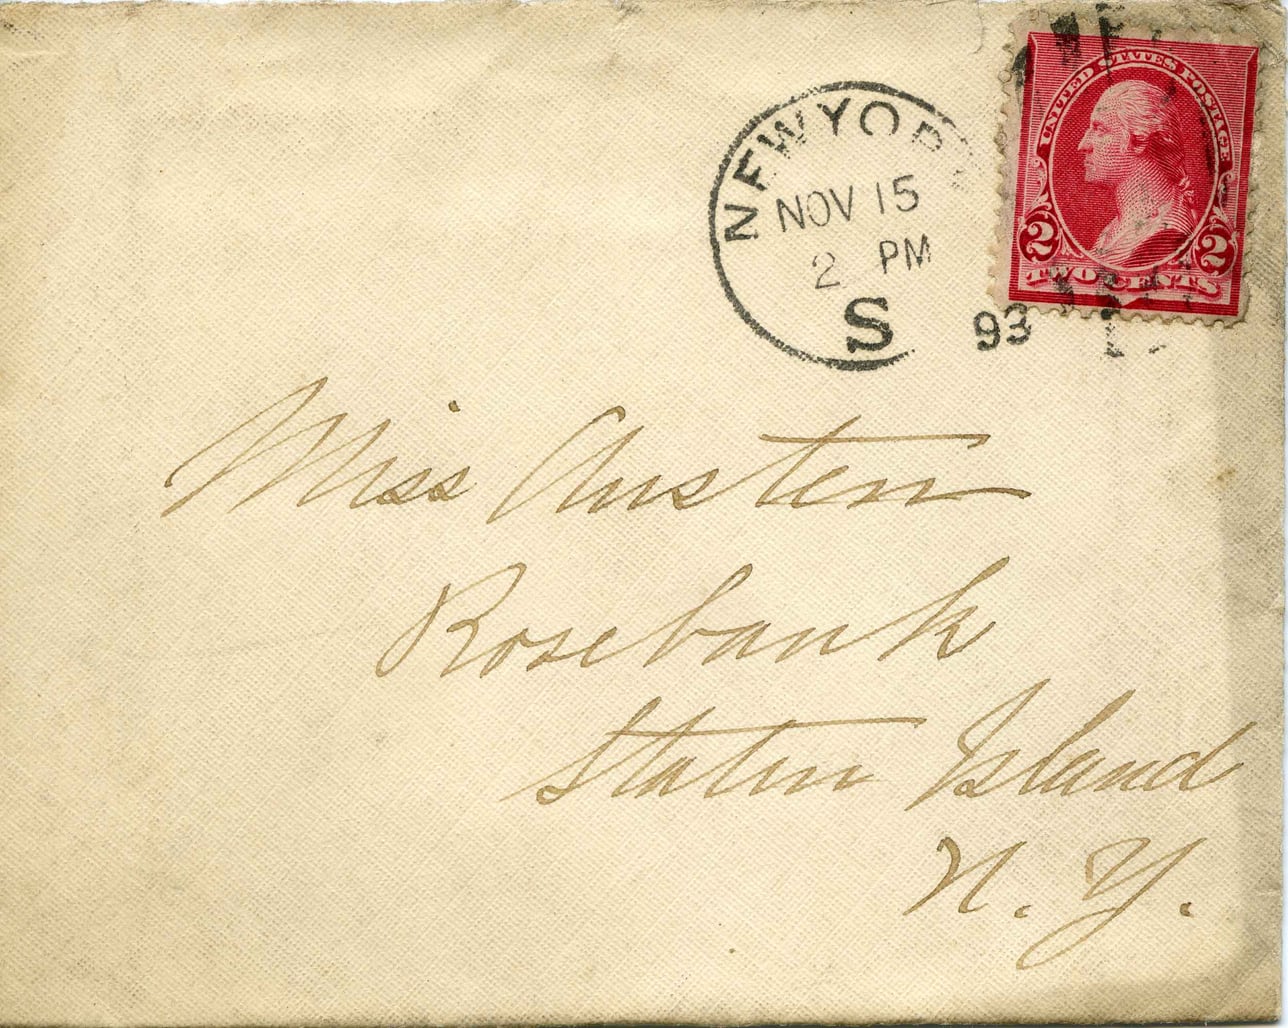 NEW YORK
NOV 15
2 PM
S 93
UNITED STATES POSTAGE
2 2
TWO CENTS
Miss Austen
Rosebank
Staten Island
N. Y.